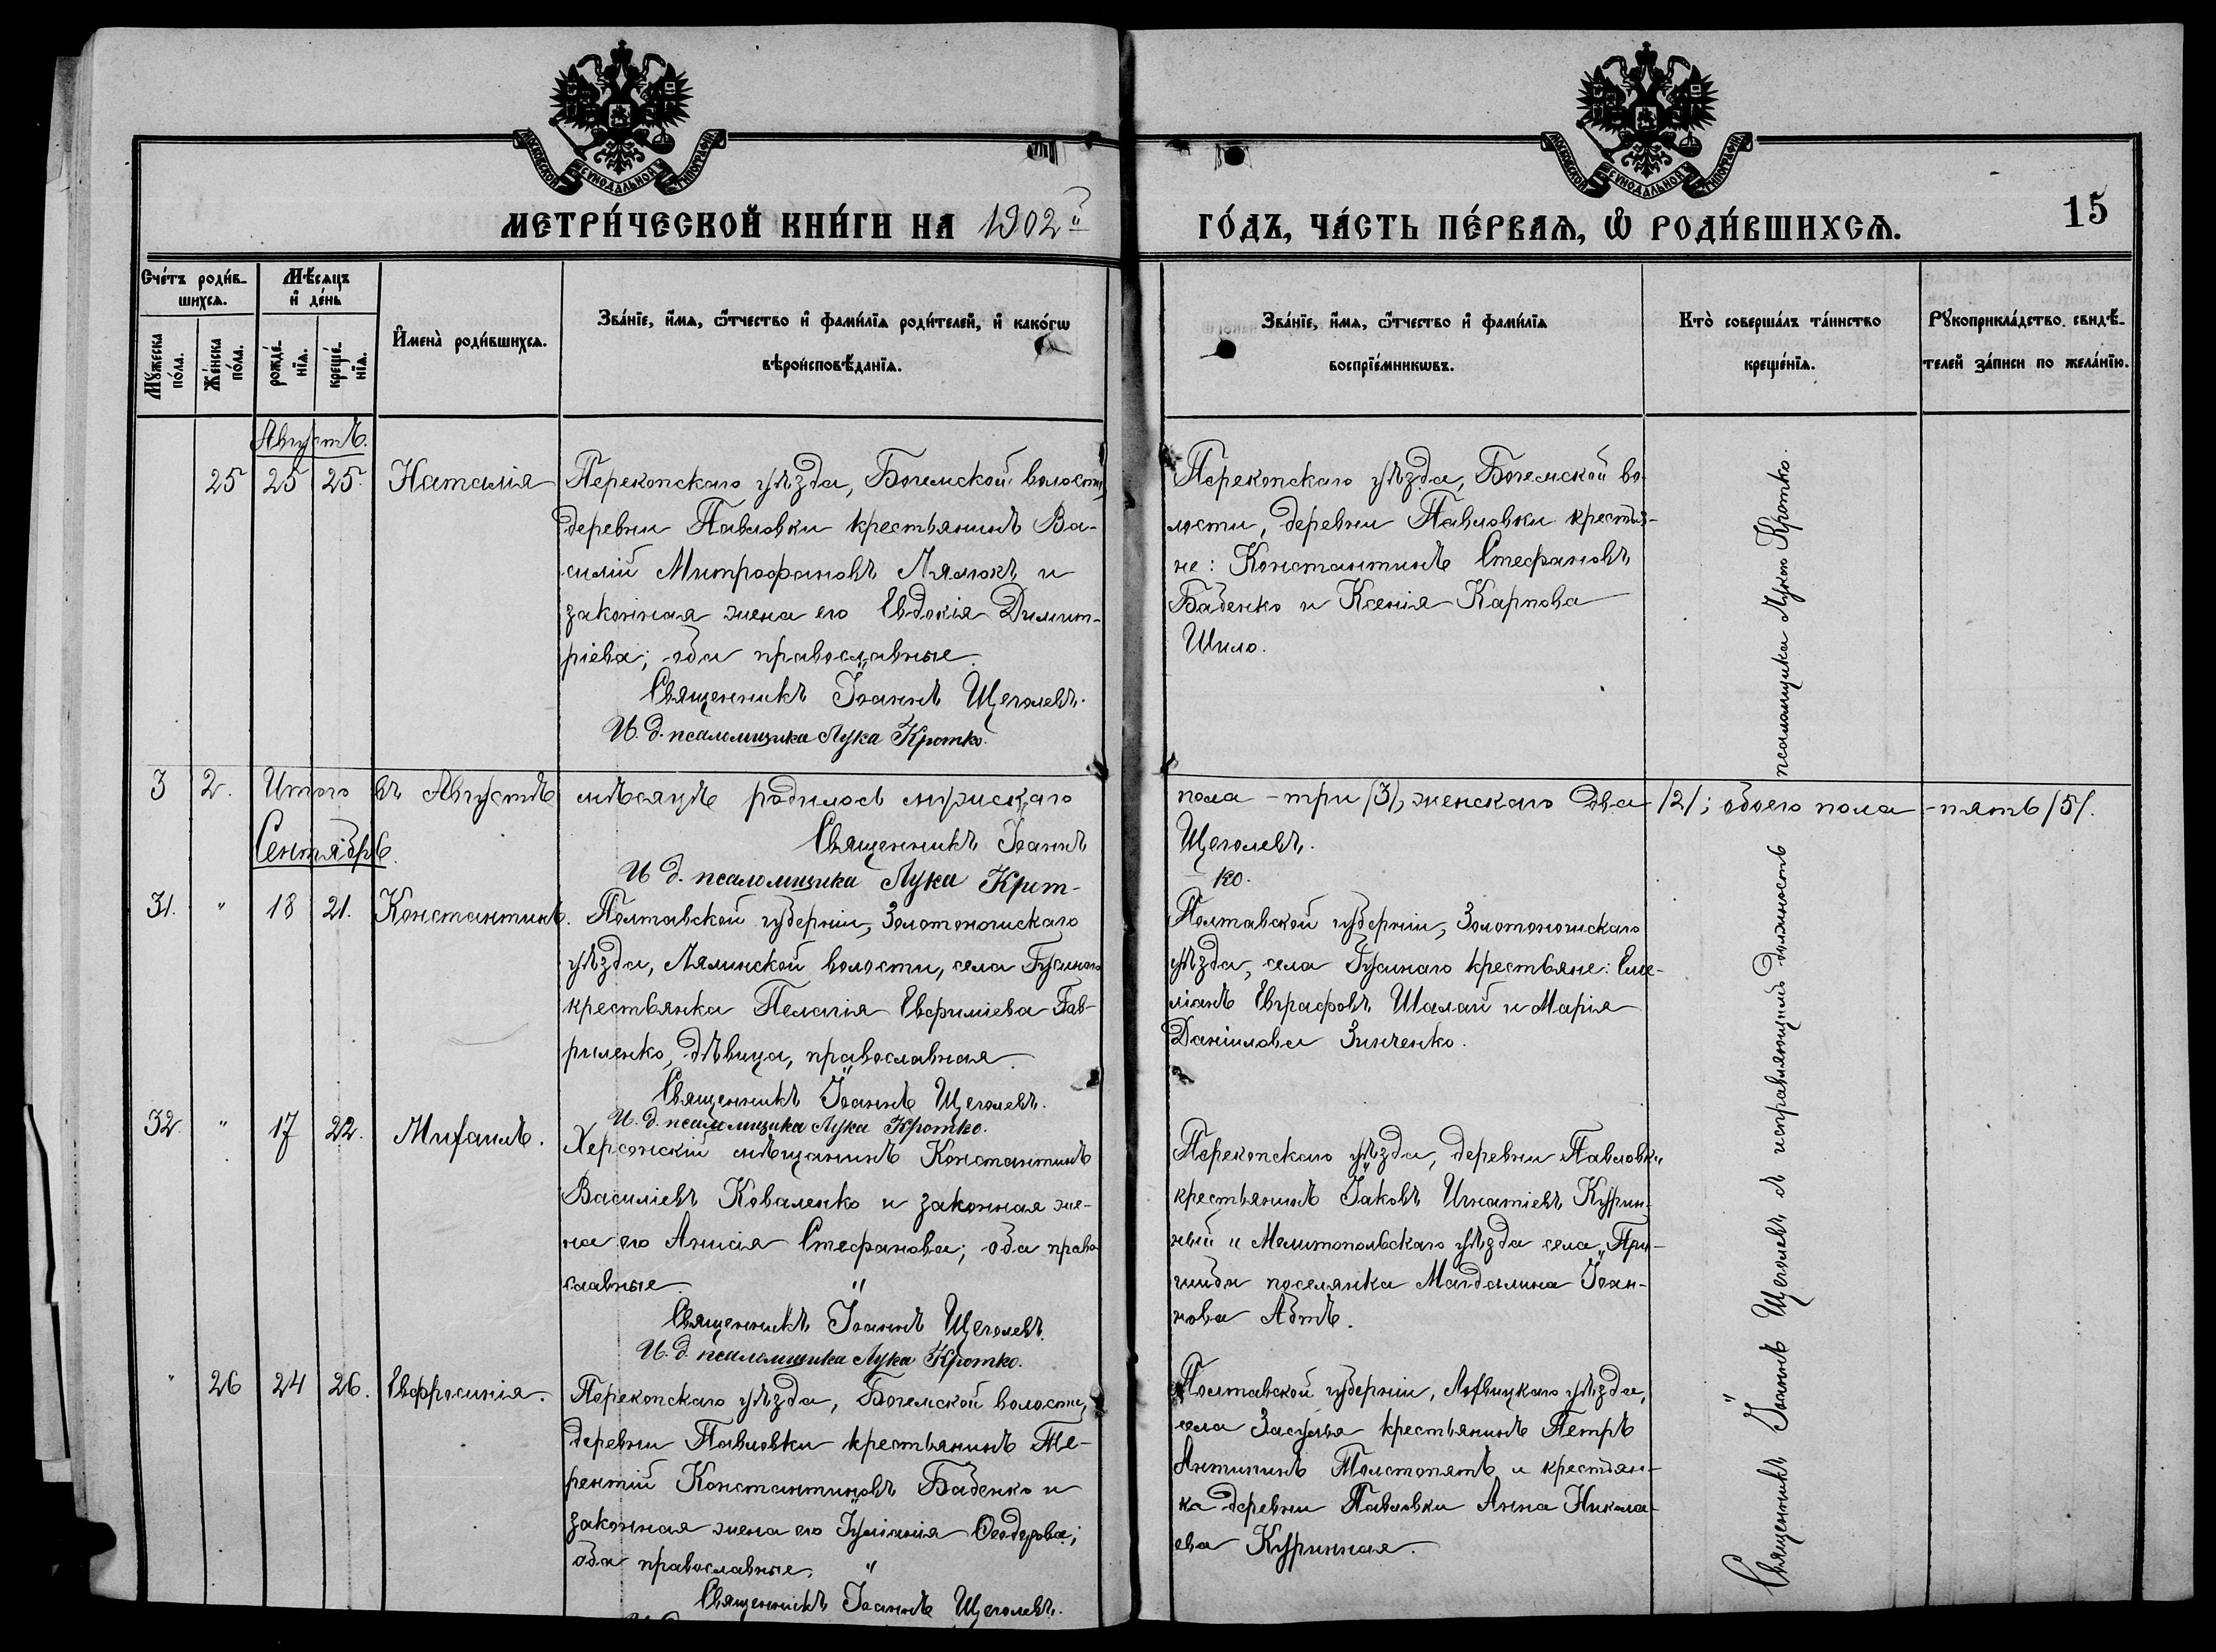 МОСКОВСКОЙ СѴНОДАЛЬНОЙ ТИПОГРАФІИ
МЕТРИ́ЧЕСКОЙ КНИ́ГИ НА 1902й
Сче́тъ роди́в-
шихсѧ.
Мѣ́сѧцъ
и҆ де́нь
Мꙋ́жеска
по́ла.
Же́нска
по́ла.
рожде́-
нїѧ.
креще́-
нїѧ.
И҆мена̀ роди́вшихсѧ.
Зва́нїе, и҆́мѧ, ѻ҆́тчество и҆ фами́лїѧ роди́телей, и҆ како́гѡ
вѣроисповѣ́данїѧ.
Августъ.
25 25 25. Наталія
Перекопскаго уѣзда, Богемской волости,
деревни Павловки крестьянинъ Ва-
силій Митрофановъ Лялюкъ и
законная жена его Евдокія Димит-
ріева; оба православные.
Священникъ Іоаннъ Щеголевъ.
И. д. псаломщика Лука Кротко.
3 2. Итого въ Августѣ мѣсяцѣ родилось мужскаго
Священникъ Іоаннъ
И. д. псаломщика Лука Крот-
Сентябрь.
31. " 18 21. Константинъ.
Полтавской губерніи, Золотоношскаго
уѣзда, Лялинской волости, села Гусинаго
крестьянка Пелагія Евфиміева Гав-
риленко, дѣвица, православная.
Священникъ Іоаннъ Щеголевъ.
И. д. псаломщика Лука Кротко.
32. " 17 22. Михаилъ.
Херсонскій мѣщанинъ Константинъ
Василіевъ Коваленко и законная же-
на его Анисія Стефанова; оба право-
славные.
Священникъ Іоаннъ Щеголевъ.
И. д. псаломщика Лука Кротко.
" 26 24 26. Евфросинія.
Перекопскаго уѣзда, Богемской волости,
деревни Павловки крестьянинъ Те-
рентій Константиновъ Баденко и
законная жена его Іуліанія Ѳеодорова;
оба православные.
Священникъ Іоаннъ Щеголевъ.
МОСКОВСКОЙ СѴНОДАЛЬНОЙ ТИПОГРАФІИ
ГО́ДЪ, ЧА́СТЬ ПЕ́РВАѦ, Ѡ҆ РОДИ́ВШИХСѦ.
15
Зва́нїе, и҆́мѧ, ѻ҆́тчество и҆ фами́лїѧ
воспрїе́мникѡвъ.
Кто̀ соверша́лъ та́инство
креще́нїѧ.
Рꙋкоприкла́дство свидѣ́-
телей за́писи по жела́нїю.
Перекопскаго уѣзда, Богемской во-
лости, деревни Павловки крестья-
не: Константинъ Стефановъ
Баденко и Ксенія Карпова
Шило.
пола - три /3/, женскаго два /2/; обоего пола - пять /5/.
Щеголевъ.
- ко.
Полтавской губерніи, Золотоношскаго
уѣзда, села Гусинаго крестьяне: Еме-
ліанъ Евграфовъ Шалай и Марія
Даніилова Зинченко.
Перекопскаго уѣзда, деревни Павловки
крестьянинъ Іаковъ Игнатіевъ Курин-
ный и Мелитопольскаго уѣзда села При-
шибъ поселянка Магдалина Іоан-
нова Абтъ.
Полтавской губерніи, Лохвицкаго уѣзда,
села Засулья крестьянинъ Петръ
Антипинъ Толстопятъ и крестьян-
ка деревни Павловки Анна Никола-
ева Куринная.
Священникъ Іоаннъ Щеголевъ съ исправляющимъ должность псаломщика Лукою Кротко.